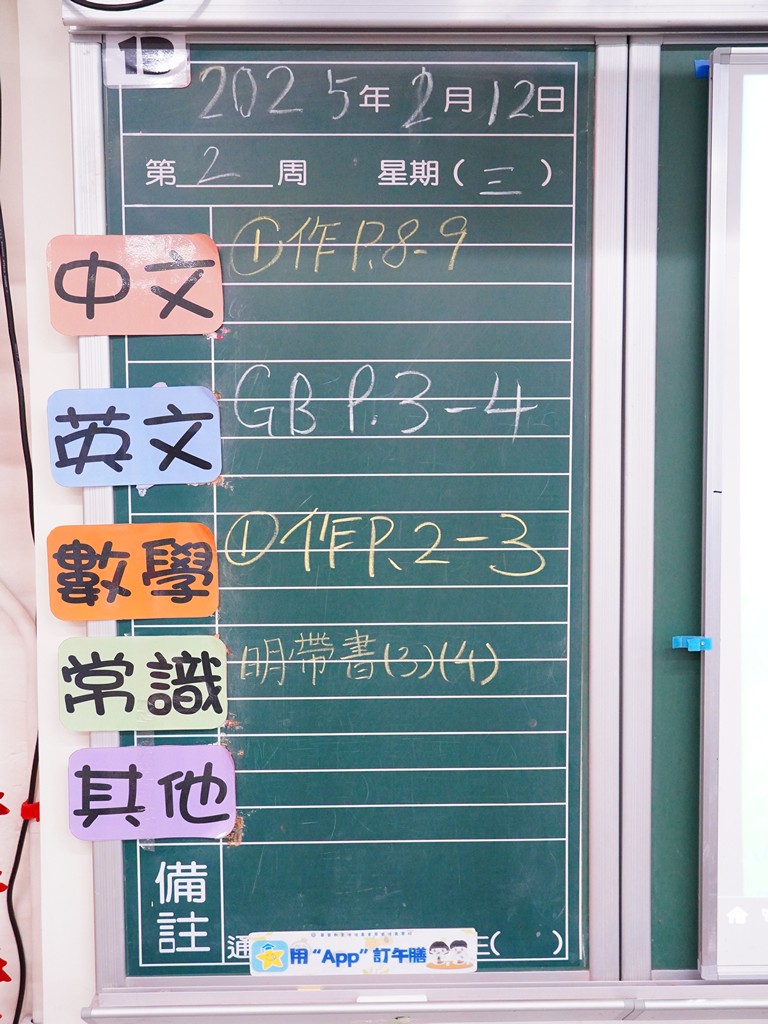 1D
2025年2月12日
第2周 星期(三)
中文 ①作P.8-9
英文 GB P.3-4
數學 ①作P.2-3
常識 明帶書(3)(4)
其他
備註
通
用“App”訂午膳
( )